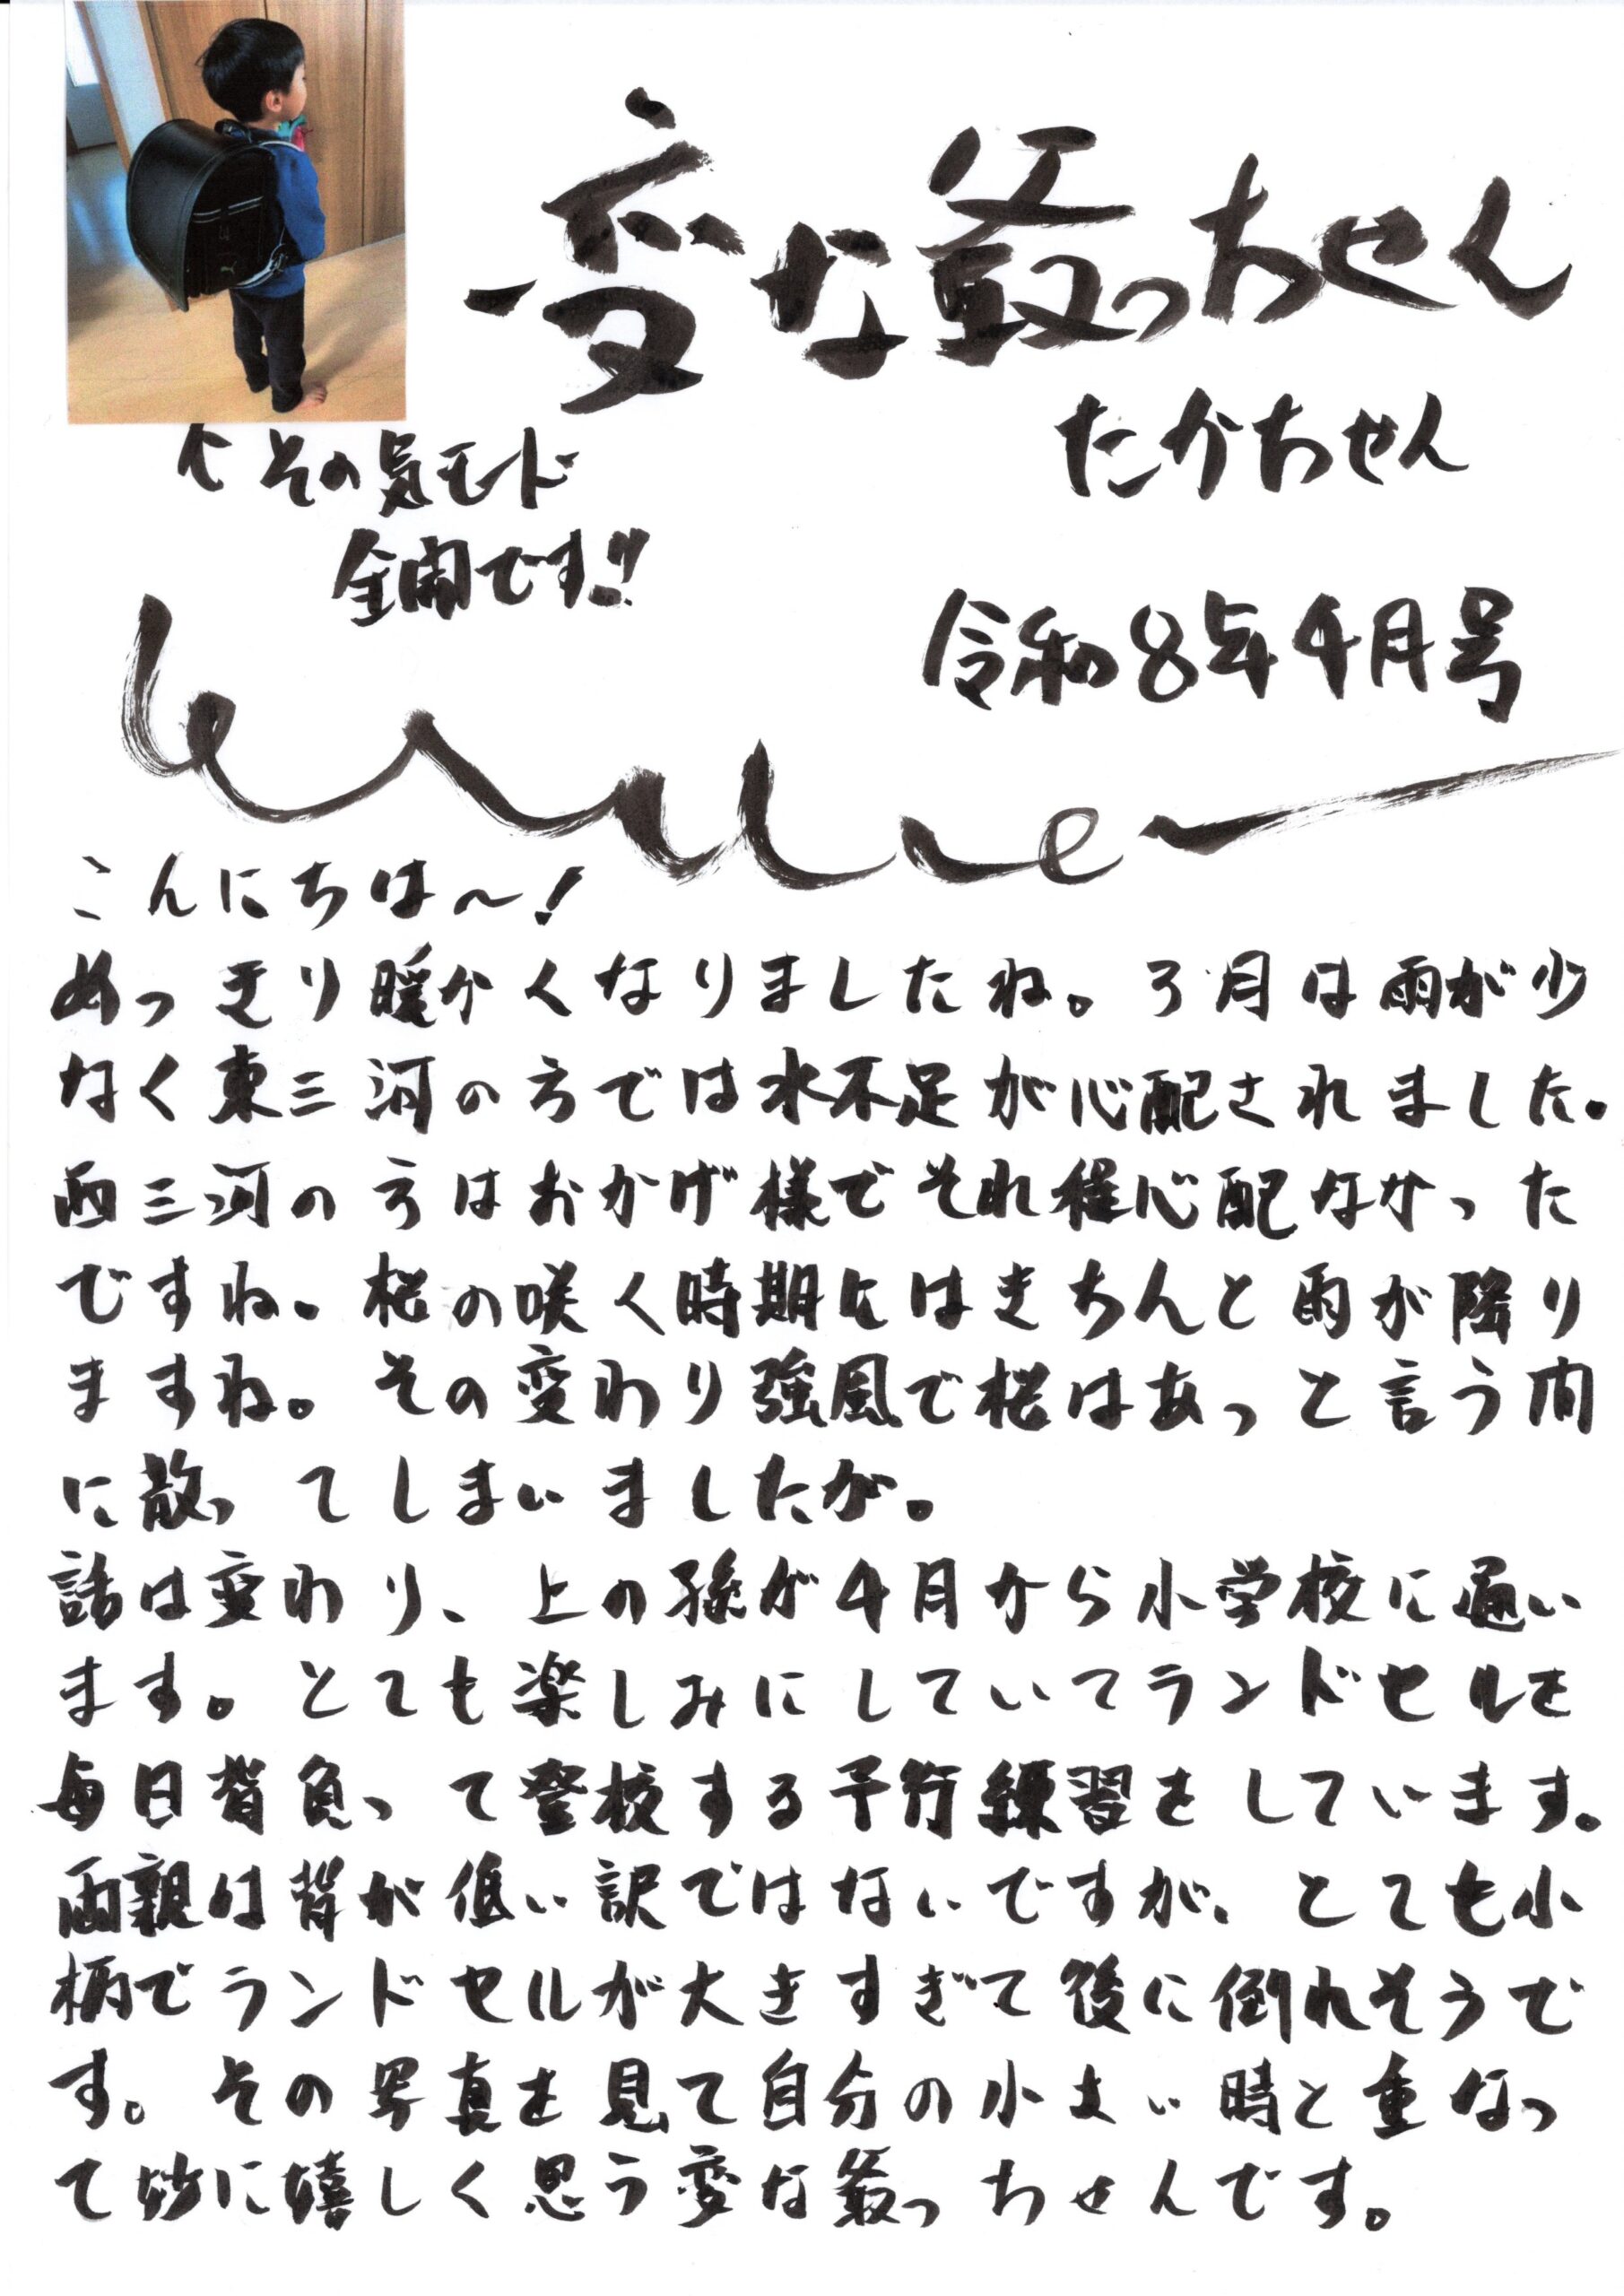 変な爺っちゃん
たかちゃん
↑その気モード
全開です!!
令和8年4月号
こんにちは～!
めっきり暖かくなりましたね。3月は雨が少
なく東三河の方では水不足が心配されました。
西三河の方はおかげ様でそれ程心配なかった
ですね。桜の咲く時期にはきちんと雨が降り
ますね。その変わり強風で桜はあっと言う間
に散ってしまいましたが。
話は変わり、上の孫が4月から小学校に通い
ます。とても楽しみにしていてランドセルを
毎日背負って登校する予行練習をしています。
両親は背が低い訳ではないですが、とても小
柄でランドセルが大きすぎて後に倒れそうで
す。その写真を見て自分の小さい時と重なっ
て妙に嬉しく思う変な爺っちゃんです。